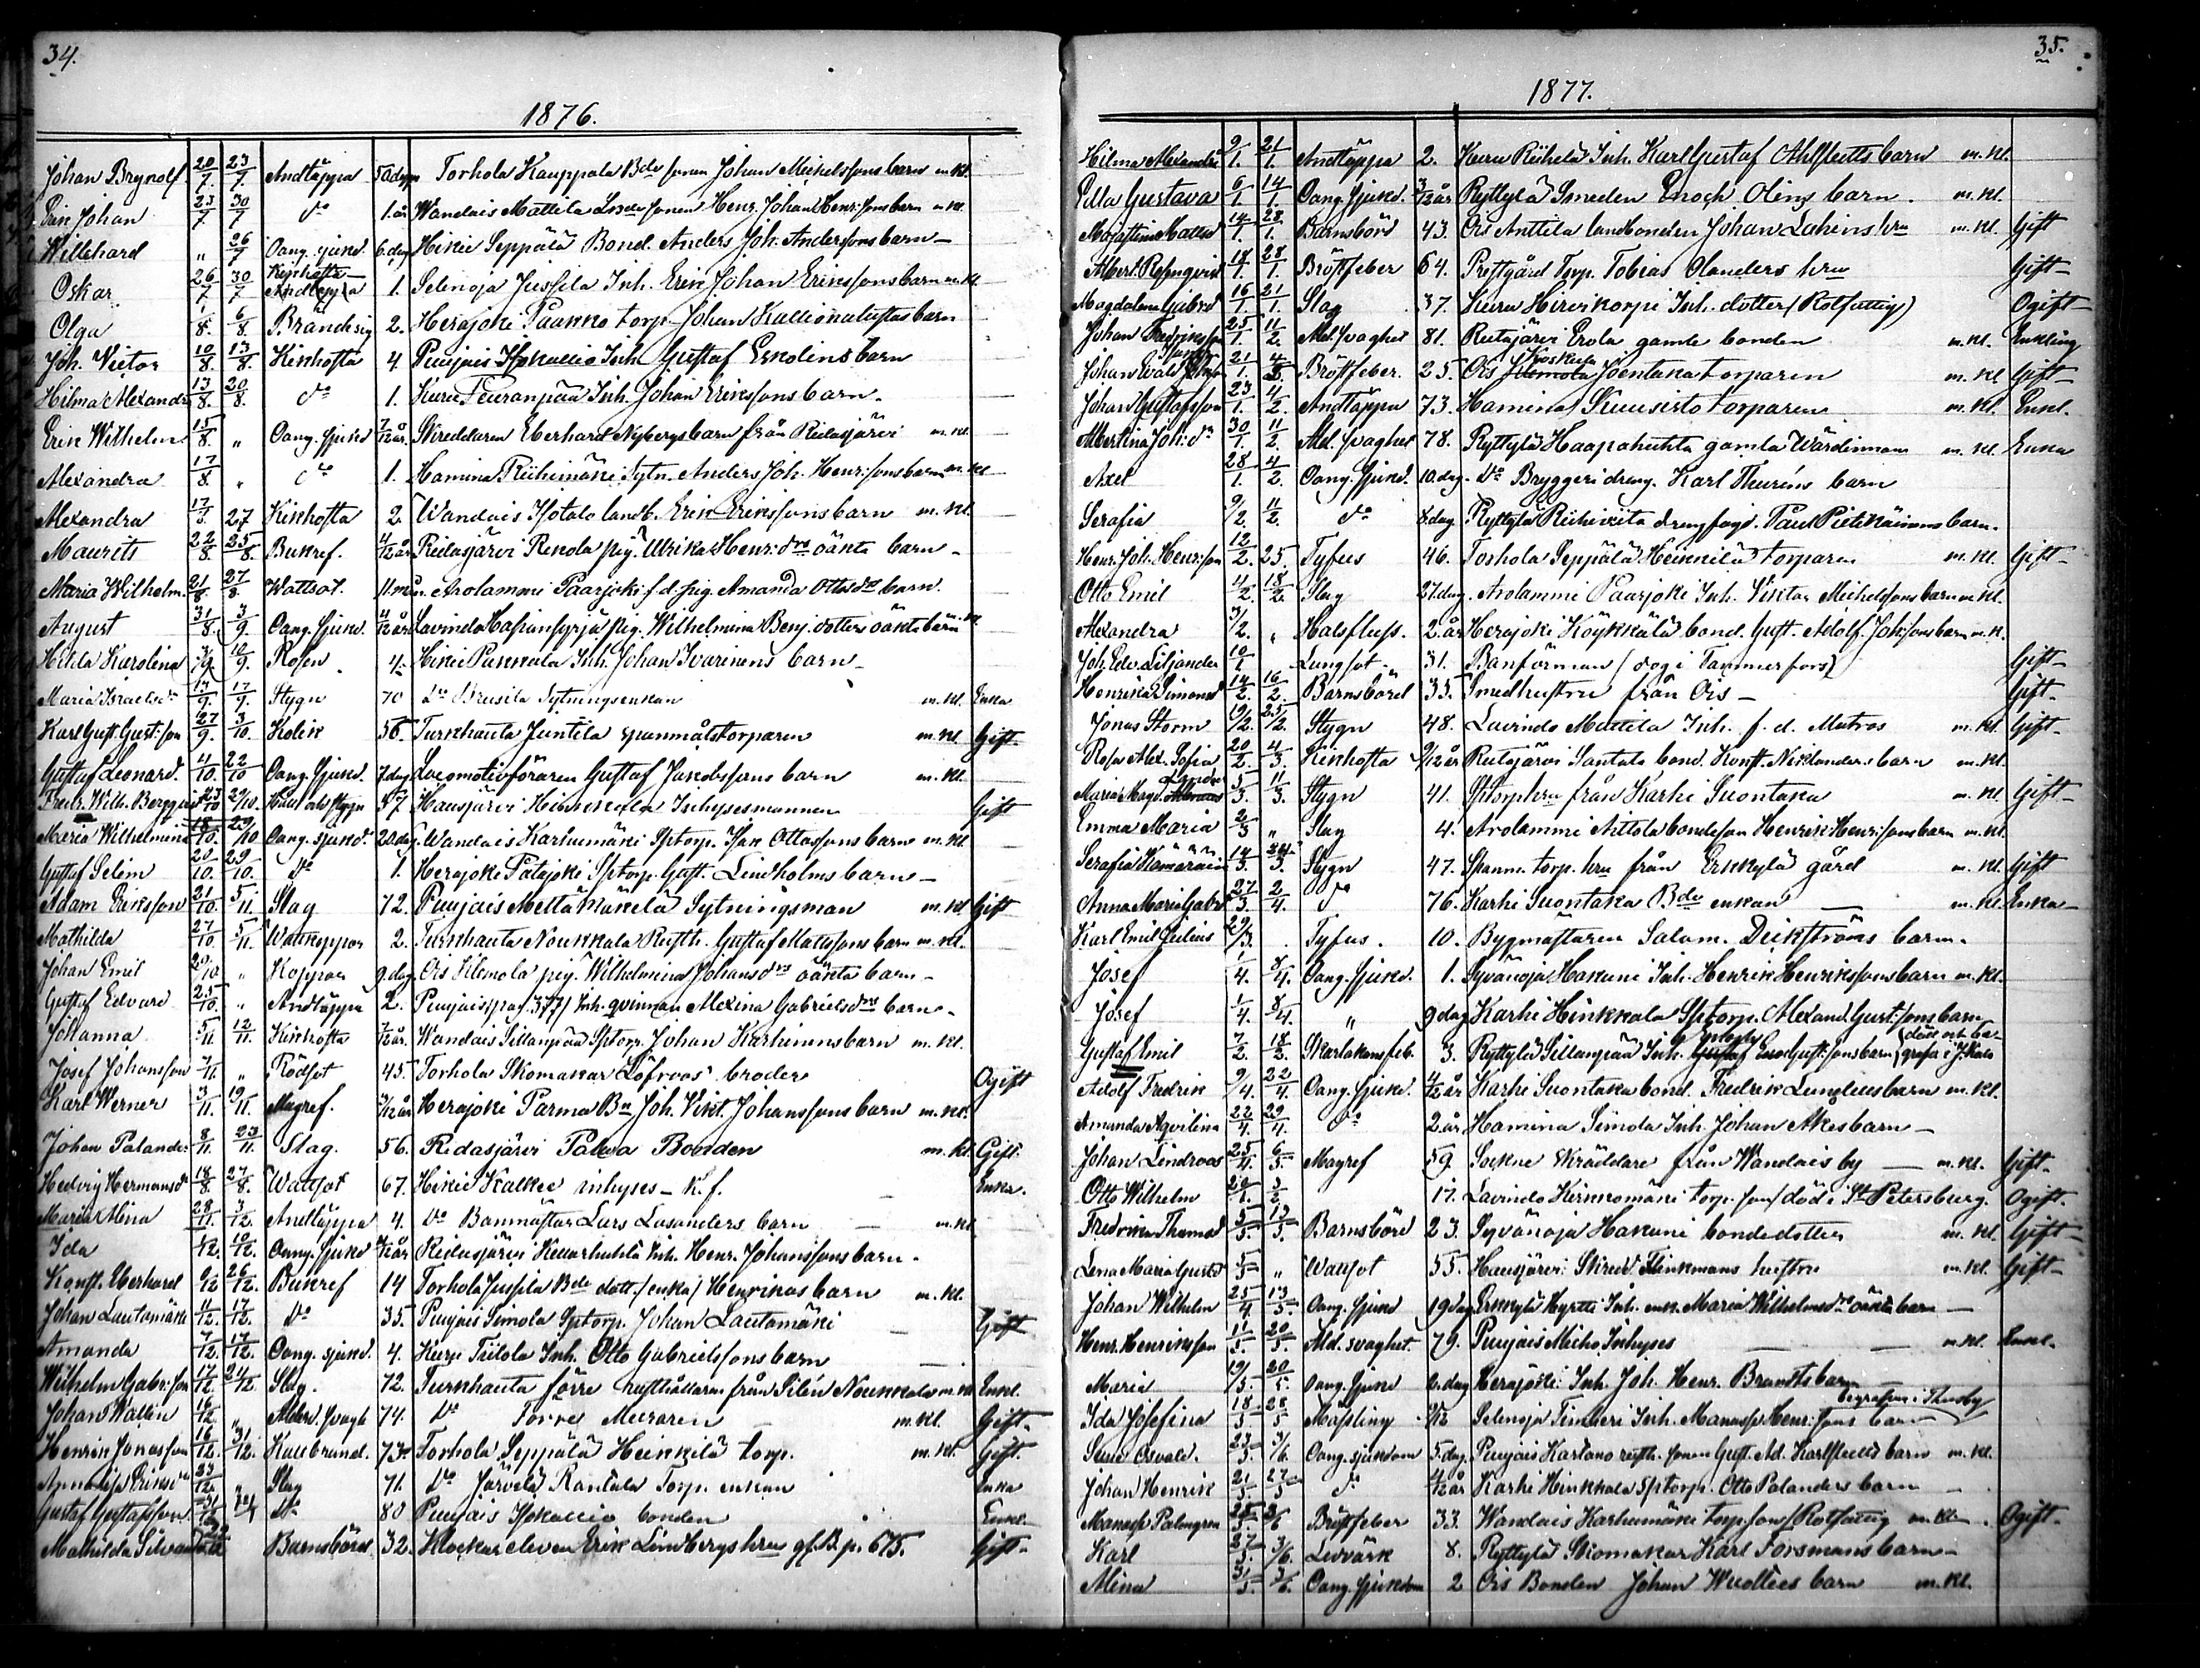 34.
1876.
Johan Brynolf 20/7. 23/7. Andtäppa 50 dagar Torhola Kauppala Bde sonen Johan Michelssons barn m.kl.
Erik Johan 23/7 30/7 do 1. år Wandais Mattila Johan Henr:sons barn m.kl.
Willehard " 26/7 Oang. sjukd. 6. dag Hikie Seppälä Bond. Anders Joh. Anderssons barn —
Oskar 26/7 30/7 Kikhosta 1. Selenoja Jussila Inh. Erik Johan Erikssons barn m.kl.
Olga 1/8. 6/8. 2. Herajoki Paakko torp. Johan barn
Joh. Victor 10/8. 13/8. Kikhosta 4 Puujais Isokallio Inh. Gustaf Eskolins barn
Hilma Alexandra 13/8. 20/8. do 1. Kuru Peuranpää Inh. Johan Erikssons barn.
Erik Wilhelm 15/8. " Oang. sjukd 7/12 år. Skreddaren Eberhard Nybergs barn från Ridasjärvi m.kl.
Alexandra 17/8. " do 1. Hamina Riihimäki Sytn. Anders Joh. Henr:sons barn m.kl
Alexandra 17/8. 27 Kikhosta 2. Wandais Isotalo landb. Erik Erikssons barn m.kl.
Maurits 22/8 25/8. Bukref. 4/12 år Ridasjärvi Rekola pig. Ulrika Henr:drs oäkta barn —
Maria Wilhelm. 21/8. 27/8. Wattsot. 11. mån. Arolammi Paarjoki f.d. pig. Amanda Ottosdrs barn.
August 31/8. 3/9. Oang. sjukd. 4/12 år Lavinto pig. Wilhelmina Benj. dotters oäkta barn
Hilda Karolina 3/9. 10/9. Rosen 4. Hikie Pakkala Inh. Johan Ivarinens barn —
Maria Israelsdr 14/9. 17/9. Stygn 70 do Sytningsenkan m.kl. Enka
Karl Gust. Gust:son 27/9. 3/10. Kolik 56. Turkhauta Juntila spanmålstorparen m.kl. Gift
Gustaf Leonard. 4/10. 22/10 Oang. sjukd. 7. dag Locomotivföraren Gustaf Jakobssons barn m.kl.
Fredr. Wilh. Bergqvist 23/10 29/10. 57 Hausjärvi Hinkkala Inhysesmannen Gift
Maria Wilhelmina 18/10. 29/10 Oang. sjukd. 20. dag. Wandais Karhumäki Sptorp. Isak Ottossons barn m.kl.
Gustaf Selim 20/10. 29/10. do 1. Herajoki Patajoki Sptorp. Gust. Lindholms barn —
Adam Eriksson 21/10. 5/11. Slag 72. Puujais Mettä Mäkelä Sytningsman m.kl. Gift
Mathilda 27/10. 5/11. Wattkoppor 2. Turkhauta Noukkala Rusth. Gustaf Matssons barn m.kl.
Johan Emil 29/10 " Koppor 9. dag Ois Klemola pig. Wilhelmina Johansdrs oäkta barn —
Gustaf Edvard 25/10. " Andtäppa 2. Puujais (pag. 377) Inh. qvinnan Alexina Gabrielsdrs barn —
Johanna 5/11 12/11. Kikhosta 7/12 år. Wandais Sillanpää Sptorp. Johan Karhinens barn m.kl.
Josef Johansson 7/11. " Rödsot 45. Torhola Skomakar Löfroos' broder Ogift
Karl Werner 3/11. 19/11. Magref. 3/12 år Herajoki Parma Bn Joh. Vikt. Johanssons barn m.kl.
Johan Palander 8/11 23/11. Slag. 56. Ridasjärvi Palva Bonden m.kl. Gift.
Hedvig Hermansdr 18/8. 27/8. Wattsot 67. Hikie Kalkee inhyses — k.f. Enka.
Maria Alina 28/11. 3/12. Andtäppa 4. do Banmästar Lars Lasanders barn — m.kl
Ida 1/12. 10/12. Oang. sjukd 2/12 år. Ridasjärvi Kellarhuhta Inh. Henr. Johanssons barn.
Konst. Eberhard 9/12 26/12. Bukref 14 Torhola Jussila Bde dott. (enka) Henrikas barn m.kl.
Johan Lautamäki 11/12. 17/12. do 35. Puujais Simola Sptorp. Johan Lautamäki Gift
Amanda 7/12. 17/12. Oang. sjukd. 4. Kuru Tritola Inh. Otto Gabrielssons barn
Wilhelm Gabr:son 17/12. 24/12 Slag. 72. Turkhauta förre rusthållaren från Silén Noukkala m.kl. Enkl.
Johan Wallin 16/12. " Alderd. svagh 74. do Torres Muraren m.kl. Gift.
Henrik Jonasson 16/12. 31/12. Kallbrand. 73. Torhola Seppälä Heinkilä torp. m.kl. Gift.
Annalisa Eriksdr 23/12. " Slag 71. do Järvelä Rantala Torp. enkan Enka
Gustaf Gustafsson. 31/12 7/1 do 80 Puujais Isokallio bonden Enkl.
Mathilda Barnsbörd. 32. Klockar eleven Erik Lindbergs hru gf. B. p. 675. Gift.
35.
1877.
Hilma Alexandra 9/1. 21/1. Andtäppa 2. Kuru Riihelä Inh. Karl Gustaf Ahlstedts barn m.kl.
Edla Gustava 6/1. 14/1. Oang. sjukd. 3/12 år Ryttylä Smeden Enoch Olins barn. m.kl.
14/1. 28/1. Barnsbörd 43. Ois Anttila landbonden Johan Lahins hru m.kl. Gift
Albert. Rosenqvist 18/1. 28/1. Bröstfeber 64. Prestgård Torp. Tobias Olanders hru Gift
Magdalena Gabrd 16/1. 21/1. Slag 37. Kuru Hirvikorpi Inh. dotter (Rotfattig) Ogift
Johan 25/1 11/2. Ald. svaghet 81. Rutajärvi Erola gamle bonden m.kl. Enkling
Johan 21/1. 4/2. Bröstfeber. 25. Ois Klemola Joentaka torparen m.kl Gift
Johan Gustafsson 23/1. 4/2. Andtäppa 73. Hamina Kuusisto torparen m.kl. Enkl.
Albertina Joh:dr 30/1. 11/2. Ald. svaghet 78. Ryttylä Haapahuhta gamla Wärdinnan m.kl. Enka
Axel 28/1 4/2. Oang. sjukd. 10. dag. do Bryggeri dreng. Karl Thuréns barn
Serafia 9/2. 11/2. do 8. dag Ryttylä Riihiviita drengfogd. Paul Pietikäinens barn.
Henr. Joh. Henr:son 12/2. 25. Tyfus 46. Torhola Seppälä Heinkilä torparen m.kl. Gift
Otto Emil 4/2. 18/2. Slag 27. dag. Arolammi Paarjoki Inh. Viktor Michelssons barn m.kl.
Alexandra 3/2. " Halsfluss. 2. år Herajoki Köykkälä bond. Gust. Adolf. Johssons barn m.k.
Joh. Edv. Liljander 10/1 Lungsot. 31. Banförman (dog i Tammerfors) Gift
Henrika Simonsd 14/2. 16/2. Barnsbörd 35. Smedhustru från Ois — Gift
Jonas Storm 19/2. 25/2. Stygn 48. Lavinto Mattila Inh. f.d. Matros m.kl Gift
Rosa Alex. Sofia 20/2. 4/3. Kikhosta 9/12 år Rutajärvi Santala bond. Konst. Niklanders barn m.kl.
Maria Magd. 5/3. 11/3. Stygn 41. Sptorphru från Karhi Suontaka m.kl. Gift
Emma Maria 2/3 " Slag 4. Arolammi Aittola bondeson Henrik Henr:sons barn m.kl.
Serafia Hämäläin 14/3. Stygn 47. Spanm. torp. hru från Erkkylä gård m.kl. Gift
Anna Maria Gabrd 27/3. 2/4. do 76. Karhi Suontaka Bde enkan — m.kl. Enka
Karl Emil Julius 29/3. Tyfus. 10. Bygmästaren Salom. Dickströms barn.
Josef 1/4. 8/4. Oang. sjukd. 1. Syvänoja Hakuni Inh. Henrik Henrikssons barn m.kl.
Josef 1/4. 8/4. " 9 dag Karhi Hinkkala Sptorp. Alexand. Gust:sons barn
Gustaf Emil 7/2. 18/2. Skarlakansfeb. 3. Ryttylä Sillanpää Inh. Gust:sons barn
Adolf Fredrik 9/4. 22/4. Oang. sjukd. 4/12 år Karhi Suontaka bond. Fredrik barn m.kl.
Amanda Aqvilina 22/4. 29/4. do 2. år Hamina Simola Inh. Johan Akes barn —
Johan Lindroos 25/4. 6/5. Magref 59. Sockne skräddare från Wandais by — m.kl. Gift
Otto Wilhelm 17. Lavinto Kirkkomäki torp. son (död i St Petersburg. Ogift.
Fredrika Thomasd 5/5. 13/5. Barnsbörd 23. Syvänoja Hakuni bondedotter m.kl. Gift
Lena Maria Gustd 5/5 " Wattsot 55. Hausjärvi Skredd Flinkmans hustru m.kl. Gift
Johan Wilhelm 25/4 13/5. Oang. sjukd 19 dag Erkkylä Myrtti Inh. enk. Maria Wilhelmsdrs oäkta barn —
Henr. Henriksson 11/5. 20/5. Ald. svaghet. 79. Puujais Inhyses m.kl. Enkl.
Maria 19/5. 20/5. Oang. sjukd dag Herajoki Inh. Joh. Henr. Brandts barn
Ida Josefina 18/5 28/5 Mässling Selenoja Timberi Inh. Manasse Henr:sons barn begrafven i Thusby
Sune Osvald. 23/5. 3/6. Oang. sjukdom 5. dag. Puujais Kartano rusth. sonen Gust. Ad. Karlstedts barn m.kl.
Johan Henrik 21/5 27/5 do 4/12 år Karhi Hinkkala Sptorp. Otto Palanders barn —
Manasse Palmgren 25/5. 3/6 Bröstfeber 33. Wandais Karhumäki torp. son (Rotfattig m.kl. Ogift
Karl 27/5. 3/6. Ledvärk 8. Ryttylä Skomakar Karl Forsmans barn —
Alina 31/5 3/6. Oang. sjukdom 2 Ois Bonden Johan Wuollees barn m.kl.